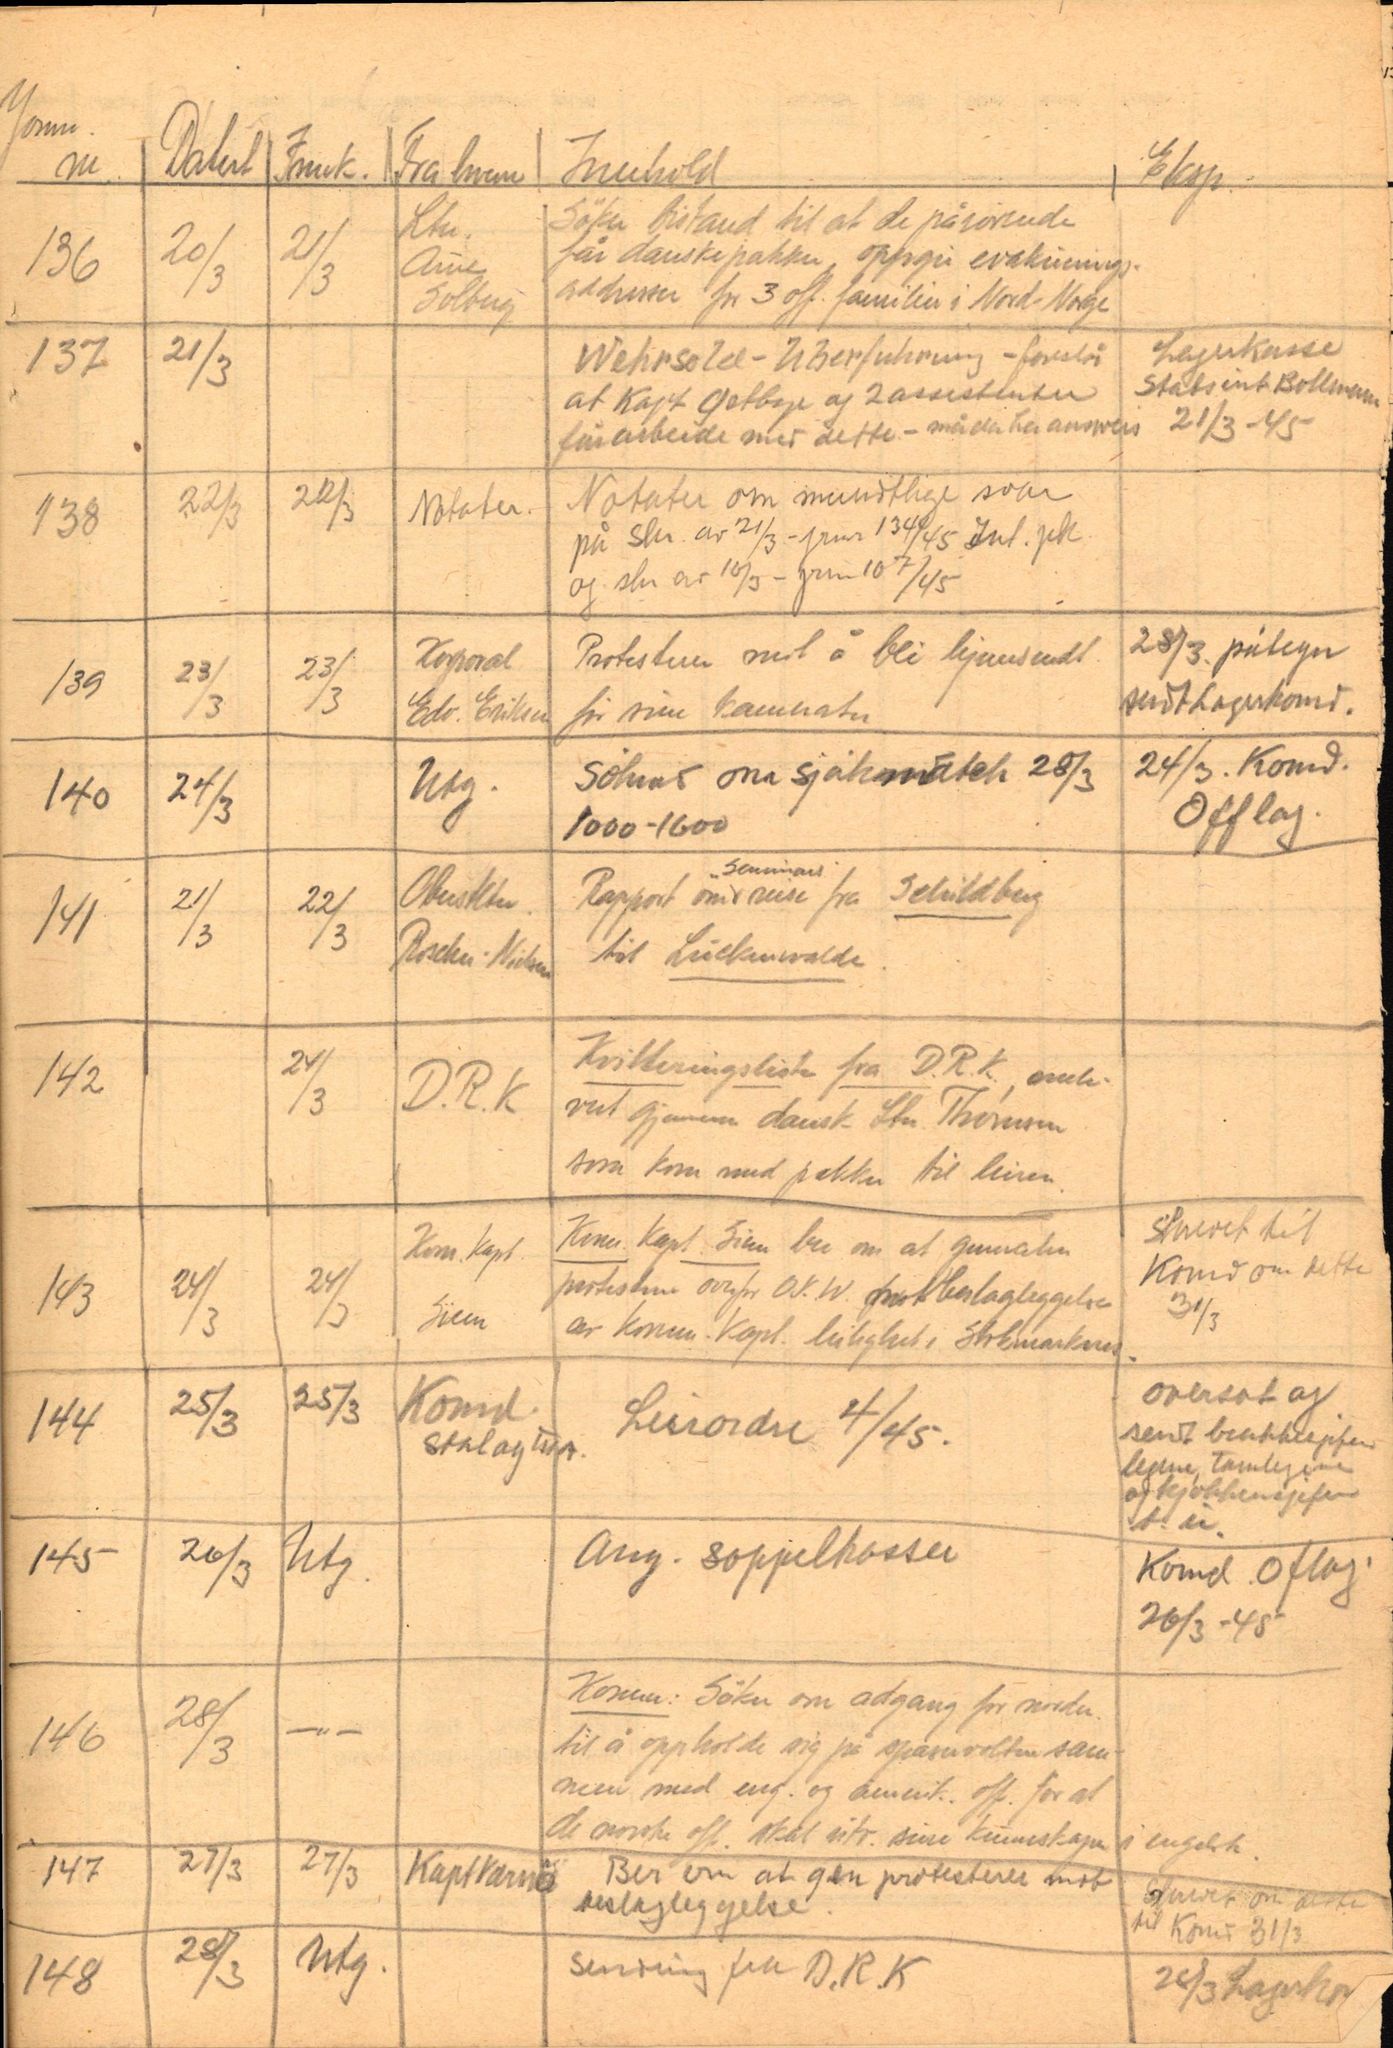 Journ. nr. Datert Innk. Fra hvem Innhold Eksp.
136 20/3 21/3 Ltn. Arne Solberg
Søker bistand til at de pårørende
får danskepakker, oppgir evakuerings-
addresser for 3 off. familier i Nord-Norge
137 21/3
Wehrsold-Überführung - foreslår
at Kapt og 2 assistenter
får arbeide med dette -
Lagerkasse
Stabsint Bollmann
21/3-45
138 22/3 22/3 Notater.
Notater om muntlige svar
på skr. av 21/3 - jrnr 134/45 Int. pk
og skr av 10/3 - jrnr 107/45
139 23/3 23/3 Korporal Edv. Eriksen
Protesterer mot å bli hjemsendt
før sine kamerater
28/3. påtegn
sendt Lagerkomd.
140 24/3 Utg.
Søknad om sjakmatch 28/3
1000-1600
24/3. Komd.
Offlag.
141 21/3 22/3 Oberstltn. Roscher-Nielsen
Rapport om Seminars reise fra Schildberg
til Luckenwalde.
142 24/3 D.R.K
Kvitteringsliste fra D.R.K.,
gjennem dansk Ltn. Thomsen
som kom med pakker til leiren.
143 24/3 24/3 Kom. Kapt. Siem
Kom. Kapt. Siem ber om at generalen
protesterer overfor O.K.W. mot beslagleggelse
av Komm. Kapt. leilighet i Stokmarknes.
Skrevet til
Komd om dette
31/3
144 25/3 25/3 Komd. Stalag IIIA.
Leirordre 4/45.
oversat og
sendt brakkesjefene
legene, tannlegene
og kjøkkensjefene
145 26/3 Utg.
Ang. søppelkasser
Komd. Oflag.
26/3-45
146 28/3 —"—
Komm: Søker om adgang for nordm.
til å oppholde sig på spaservolten sam-
men med eng. og amerik. off. for at
de norske off. skal utv. sine kunnskaper i engelsk.
147 27/3 27/3 Kapt Værnø
Ber om at gen protesterer mot
beslagleggelse.
Skrevet om dette
til Komd 31/3
148 28/3 Utg.
Sending fra D.R.K
28/3 Lagerkom